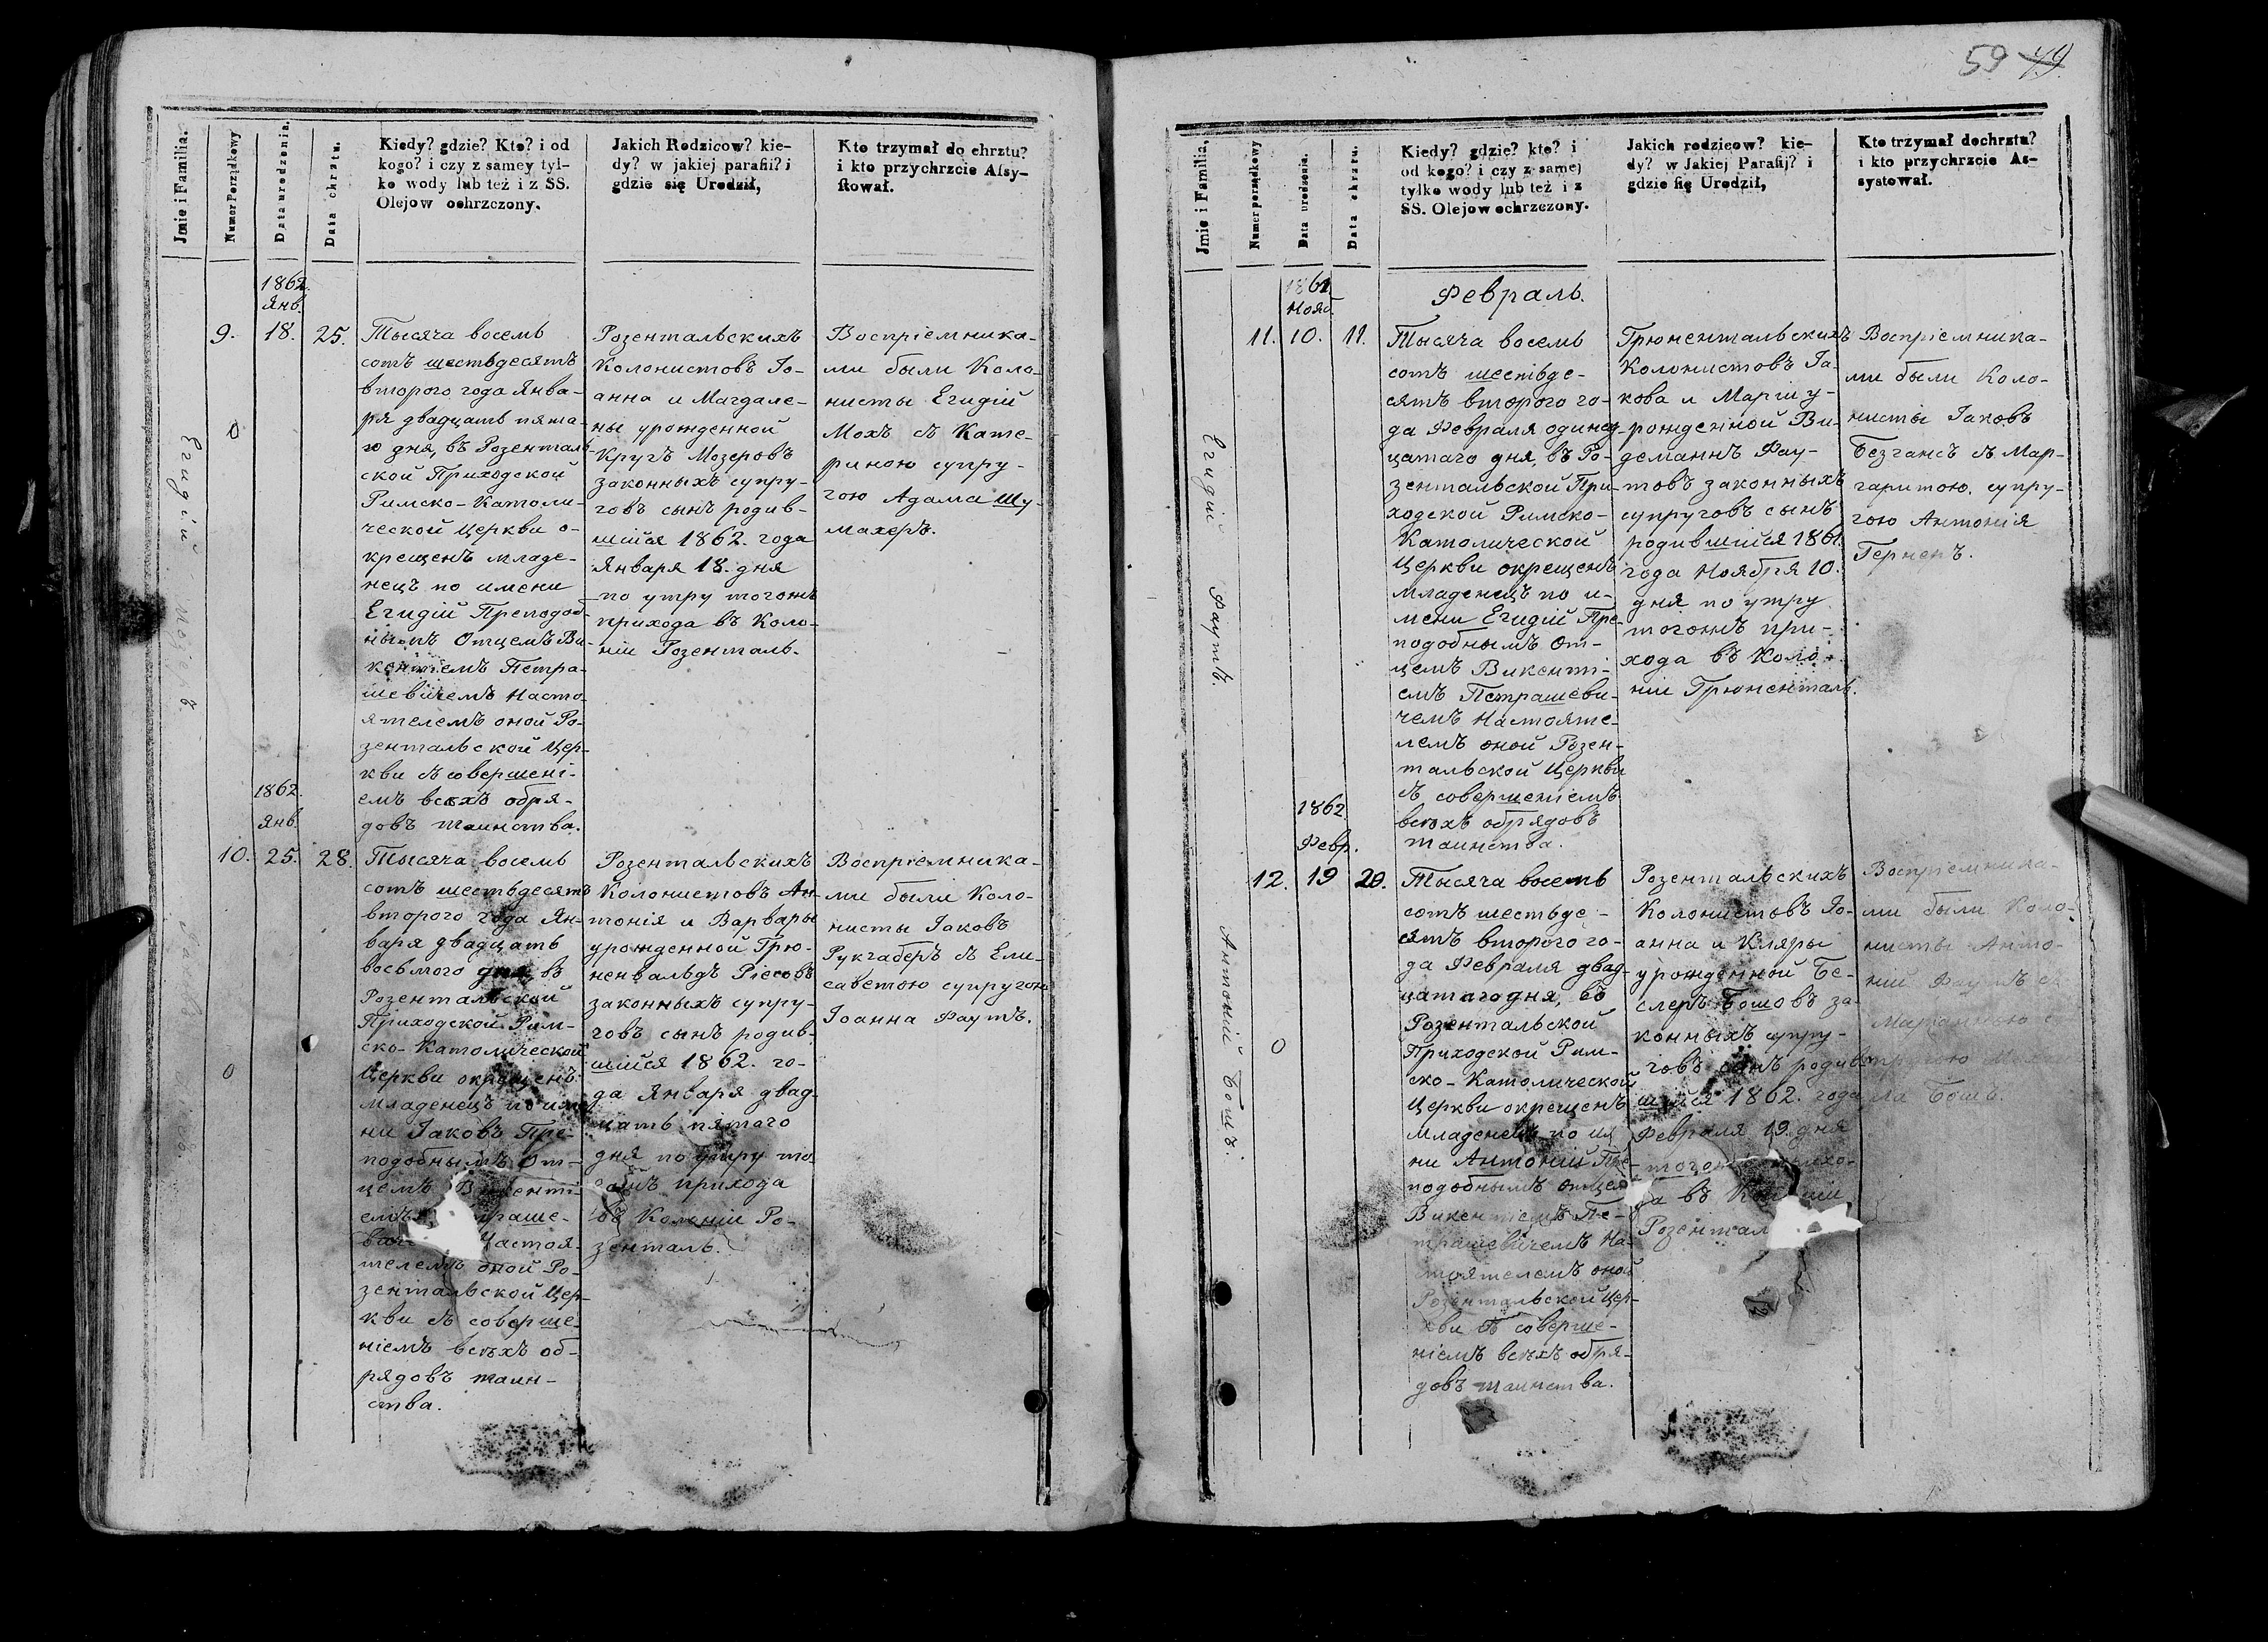 59 79
Jmie i Familia.
Numer Porządkowy
Data urodzenia.
Data chrztu.
Kiedy? gdzie? Kto? i od
kogo? i czy z samey tyl-
ko wody lub też i z SS.
Olejow ochrzczony.
Jakich Rodzicow? kie-
dy? w jakiej parafii? i
gdzie się Urodził,
Kto trzymał do chrztu?
i kto przychrzcie Assy-
stował.
1862.
Янв.
9. 18. 25.
Егидій
Тысяча восемь
сотъ шестьдесятъ
втораго года Янва-
ря двадцать пята-
го дня, въ Розенталь-
ской Приходской
Римско-Католи-
ческой Церкви о-
крещенъ младе-
нецъ по имени
Егидій Преподоб-
нымъ Отцемъ Ви-
кентіемъ Петра-
шевичемъ Насто-
ятелемъ оной Ро-
зентальской Цер-
кви съ совершені-
емъ всѣхъ обря-
довъ таинства.
Розентальскихъ
Колонистовъ Іо-
анна и Магдале-
ны урожденной
Кругъ Мозеровъ
законныхъ супру-
говъ сынъ родив-
шійся 1862. года
Января 18. дня
по утру тогожъ
прихода въ Коло-
ніи Розенталь.
Воспріемника-
ми были Коло-
нисты Егидій
Мохъ съ Кате-
риною супру-
гою Адама Шу-
махеръ.
1862.
Янв.
10. 25. 28.
Тысяча восемь
сотъ шестьдесятъ
втораго года Ян-
варя двадцать
восьмого дня, въ
Розентальской
Приходской Рим-
ско-Католической
Церкви окрещенъ
младенецъ по име-
ни Іаковъ Пре-
подобнымъ От-
цемъ Викенті-
емъ
Настоя-
телемъ оной Ро-
зентальской Цер-
кви съ соверше-
ніемъ всѣхъ об-
рядовъ таин-
ства.
Розентальскихъ
Колонистовъ Ан-
тонія и Варвары
урожденной Грю-
ненвальдъ Риссовъ
законныхъ супру-
говъ сынъ родив-
шійся 1862. го-
да Января двад-
цать пятого
дня по утру то-
гожъ прихода
въ Колоніи Ро-
зенталь.
Воспріемника-
ми были Коло-
нисты Іаковъ
Рукгаберъ съ Ели-
саветою супругою
Іоанна Фаутъ.
Jmie i Familia,
Numer porządkowy
Data urodzenia.
Data chrztu.
Kiedy? gdzie? kto? i
od kogo? i czy z samej
tylko wody lub też i z
SS. Olejow ochrzczony.
Jakich rodzicow? kie-
dy? w Jakiej Parafij? i
gdzie się Urodził,
Kto trzymał dochrztu?
i kto przychrzcie As-
systował.
1861
Нояб.
Февраль.
11. 10. 11.
Егидій Фаутъ.
Тысяча восемь
сотъ шестьде-
сятъ втораго го-
да Февраля одинад-
цатаго дня, въ Ро-
зентальской При-
ходской Римско-
Католической
Церкви окрещенъ
младенецъ по и-
мени Егидій Пре-
подобнымъ От-
цемъ Викенті-
емъ Петрашеви-
чемъ Настояте-
лемъ оной Розен-
тальской Церкви
съ совершеніемъ
всѣхъ обрядовъ
таинства.
Грюнентальскихъ
Колонистовъ Іа-
кова и Маріи у-
рожденной Ви-
деманнъ Фау-
товъ законныхъ
супруговъ сынъ
родившійся 1861.
года Ноября 10.
дня по утру
тогожъ при-
хода въ Коло-
ніи Грюненталь.
Воспріемника-
ми были Коло-
нисты Іаковъ
Безгансъ съ Мар-
гаритою супру-
гою Антонія
Гернеръ.
1862.
Февр.
12. 19 20.
Антоній Бошъ.
Тысяча восемь
сотъ шестьде-
сятъ втораго го-
да Февраля двад-
цатаго дня, въ
Розентальской
Приходской Рим-
ско-Католической
Церкви окрещенъ
младенецъ по им
ни Антоній Пре-
подобнымъ Отцемъ
Викентіемъ Пе-
трашевичемъ На-
тоятелемъ оной
Розентальской Цер-
кви съ соверше-
ніемъ всѣхъ обря-
довъ таинства.
Розентальскихъ
Колонистовъ Іо-
анна и Кляры
урожденной Бе-
слеръ Бошовъ за-
конныхъ супру-
говъ сынъ родив
шійся 1862. года
Февраля 19. дня
тогожъ прихо-
да въ Колоніи
Розентал
Воспріемника-
ми были Коло-
нисты Анто-
ній Фаутъ съ
Маріанною с
пругою
Бошъ.